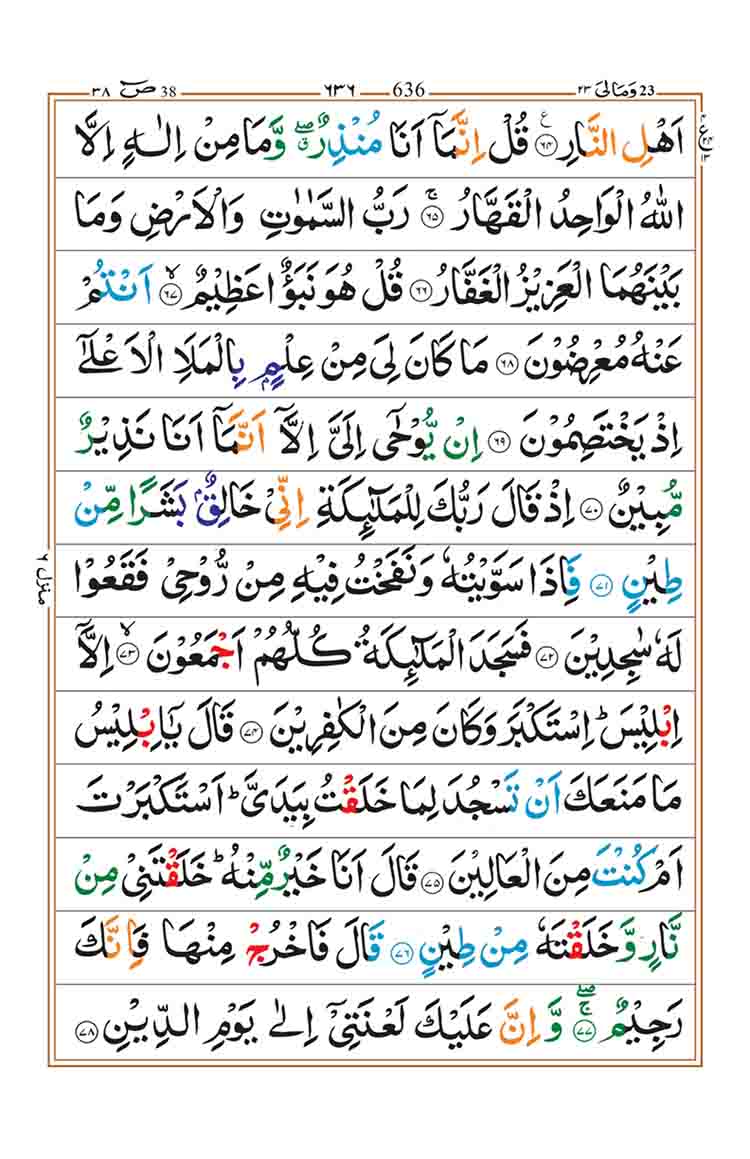 ٣٨ صٓ 38 ٦٣٦ 636 ٢٣ وَمَالِیَ 23
اَهْلِ النَّارِ ﴿٦٤﴾ قُلْ اِنَّمَآ اَنَا مُنْذِرٌ ۖۗ وَّمَا مِنْ اِلٰهٍ اِلَّا
اللّٰهُ الْوَاحِدُ الْقَهَّارُ ﴿٦٥﴾ۚ رَبُّ السَّمٰوٰتِ وَالْاَرْضِ وَمَا
بَیْنَهُمَا الْعَزِیْزُ الْغَفَّارُ ﴿٦٦﴾ قُلْ هُوَ نَبَؤٌا عَظِیْمٌ ﴿٦٧﴾ۙ اَنْتُمْ
عَنْهُ مُعْرِضُوْنَ ﴿٦٨﴾ مَا كَانَ لِیَ مِنْ عِلْمٍۭ بِالْمَلَاِ الْاَعْلٰۤی
اِذْ یَخْتَصِمُوْنَ ﴿٦٩﴾ اِنْ یُّوْحٰۤی اِلَیَّ اِلَّاۤ اَنَّمَاۤ اَنَا نَذِیْرٌ
مُّبِیْنٌ ﴿٧٠﴾ اِذْ قَالَ رَبُّكَ لِلْمَلٰٓئِكَةِ اِنِّیْ خَالِقٌۢ بَشَرًا مِّنْ
طِیْنٍ ﴿٧١﴾ فَاِذَا سَوَّیْتُهٗ وَنَفَخْتُ فِیْهِ مِنْ رُّوْحِیْ فَقَعُوْا
لَهٗ سٰجِدِیْنَ ﴿٧٢﴾ فَسَجَدَ الْمَلٰٓئِكَةُ كُلُّهُمْ اَجْمَعُوْنَ ﴿٧٣﴾ۙ اِلَّاۤ
اِبْلِیْسَ ؕ اِسْتَكْبَرَ وَكَانَ مِنَ الْكٰفِرِیْنَ ﴿٧٤﴾ قَالَ یٰۤاِبْلِیْسُ
مَا مَنَعَكَ اَنْ تَسْجُدَ لِمَا خَلَقْتُ بِیَدَیَّ ؕ اَسْتَكْبَرْتَ
اَمْ كُنْتَ مِنَ الْعَالِیْنَ ﴿٧٥﴾ قَالَ اَنَا خَیْرٌ مِّنْهُ ؕ خَلَقْتَنِیْ مِنْ
نَّارٍ وَّخَلَقْتَهٗ مِنْ طِیْنٍ ﴿٧٦﴾ قَالَ فَاخْرُجْ مِنْهَا فَاِنَّكَ
رَجِیْمٌ ﴿٧٧﴾ۖۚ وَّاِنَّ عَلَیْكَ لَعْنَتِیْۤ اِلٰی یَوْمِ الدِّیْنِ ﴿٧٨﴾
منزل ٦